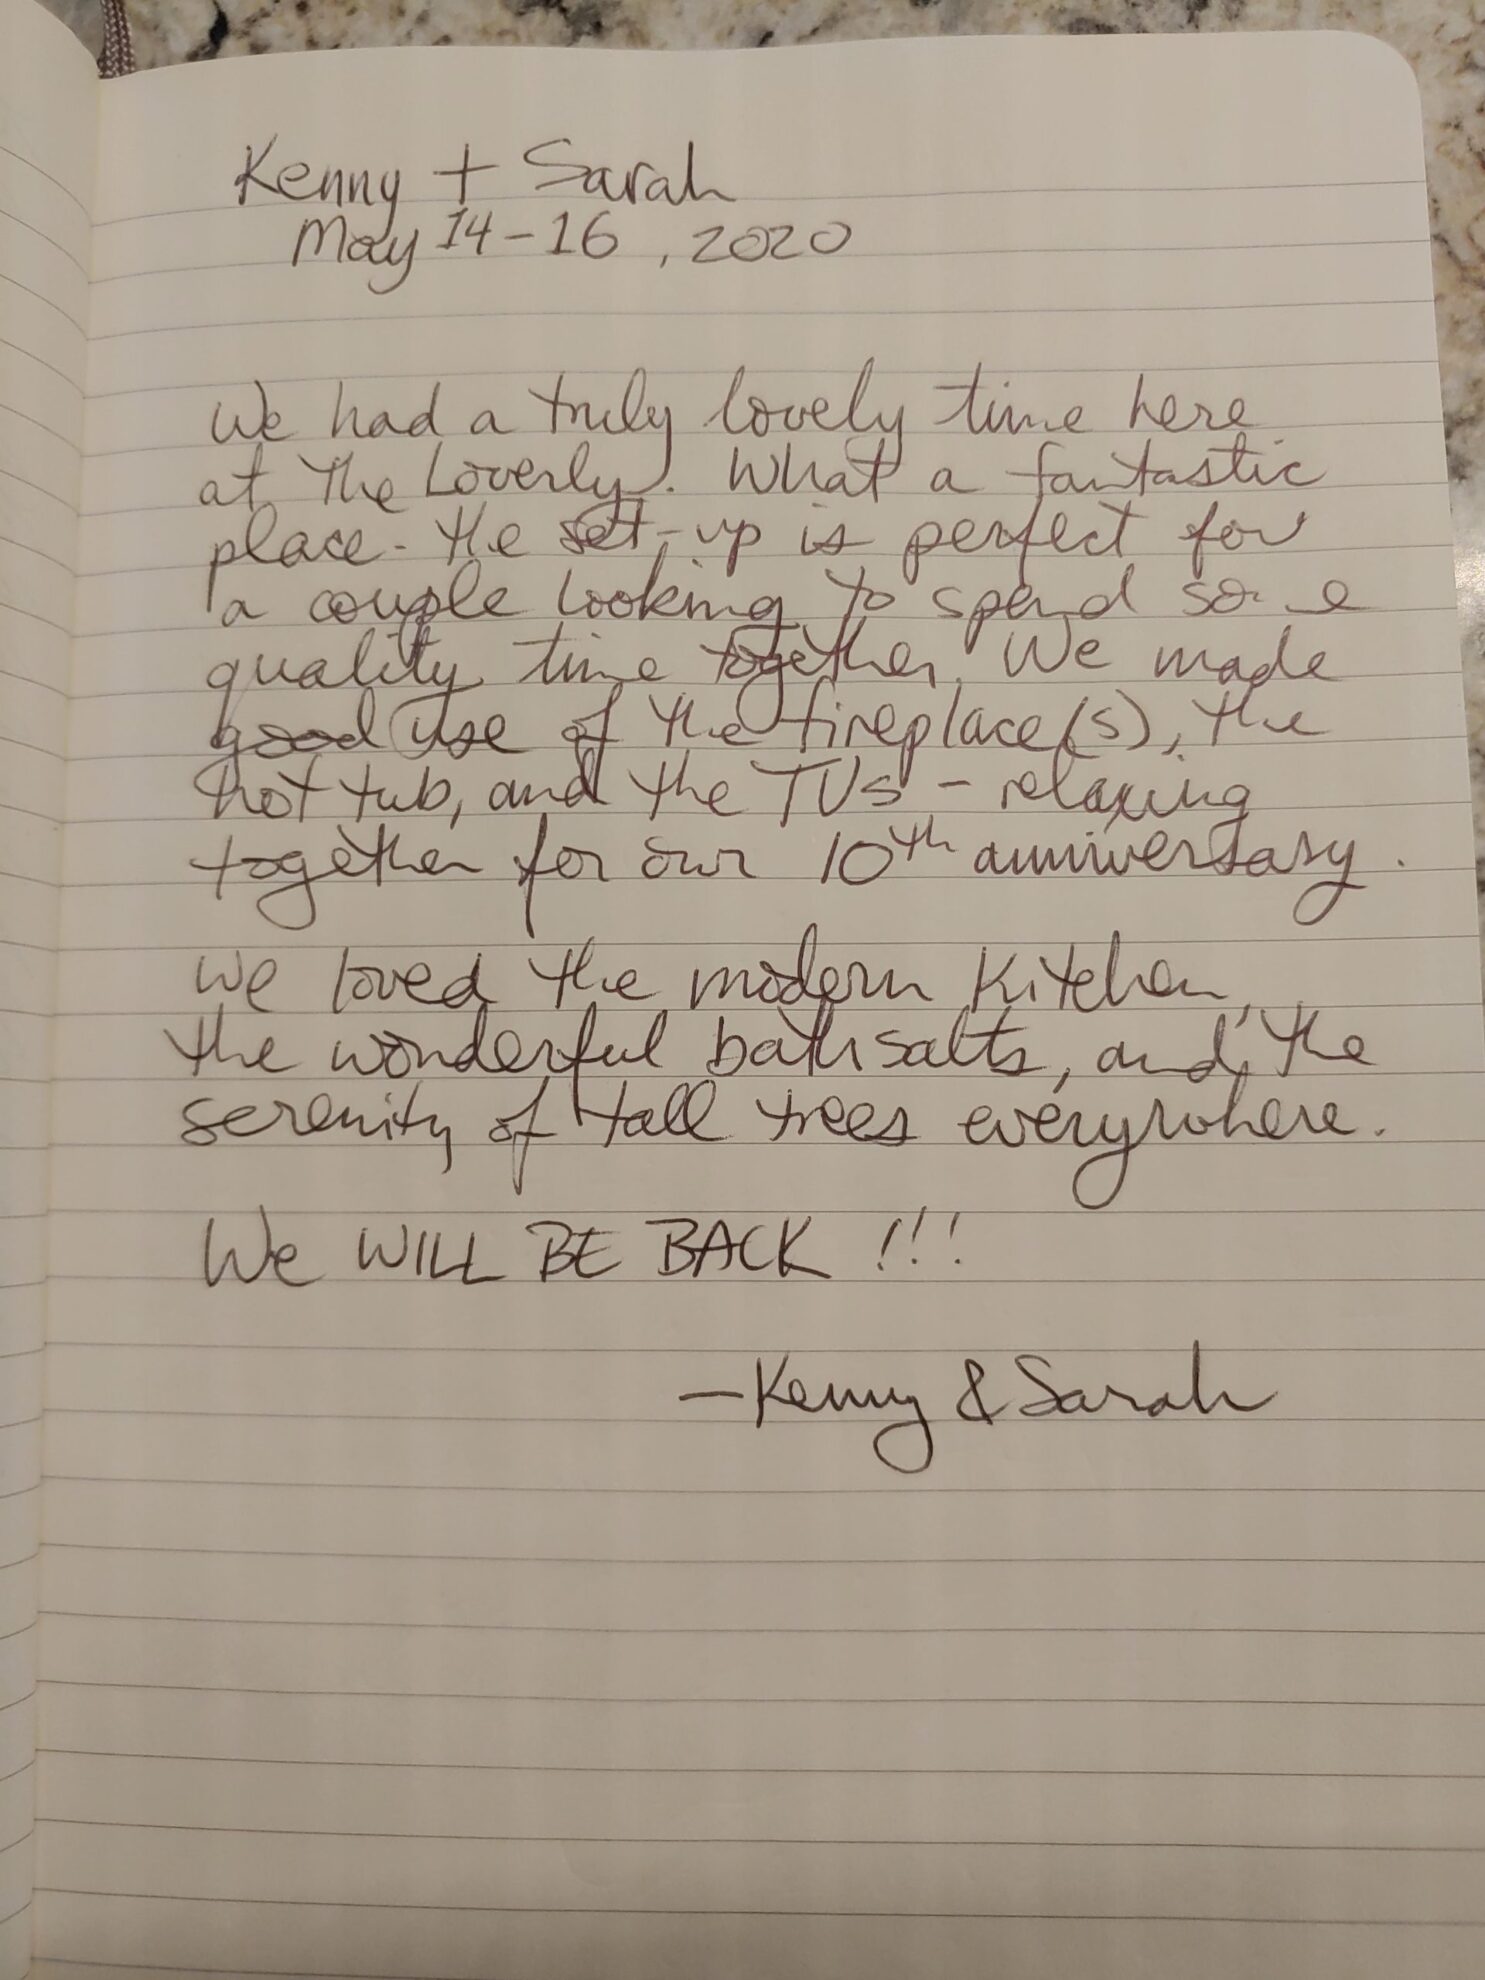 Kenny + Sarah
May 14-16, 2020
We had a truly lovely time here
at The Loverly. What a fantastic
place - the set-up is perfect for
a couple looking to spend some
quality time together. We made
good use of the fireplace(s), the
hot tub, and the TVs - relaxing
together for our 10th anniversary.
We loved the modern kitchen,
the wonderful bath salts, and the
serenity of tall trees everywhere.
We WILL BE BACK !!!
- Kenny & Sarah